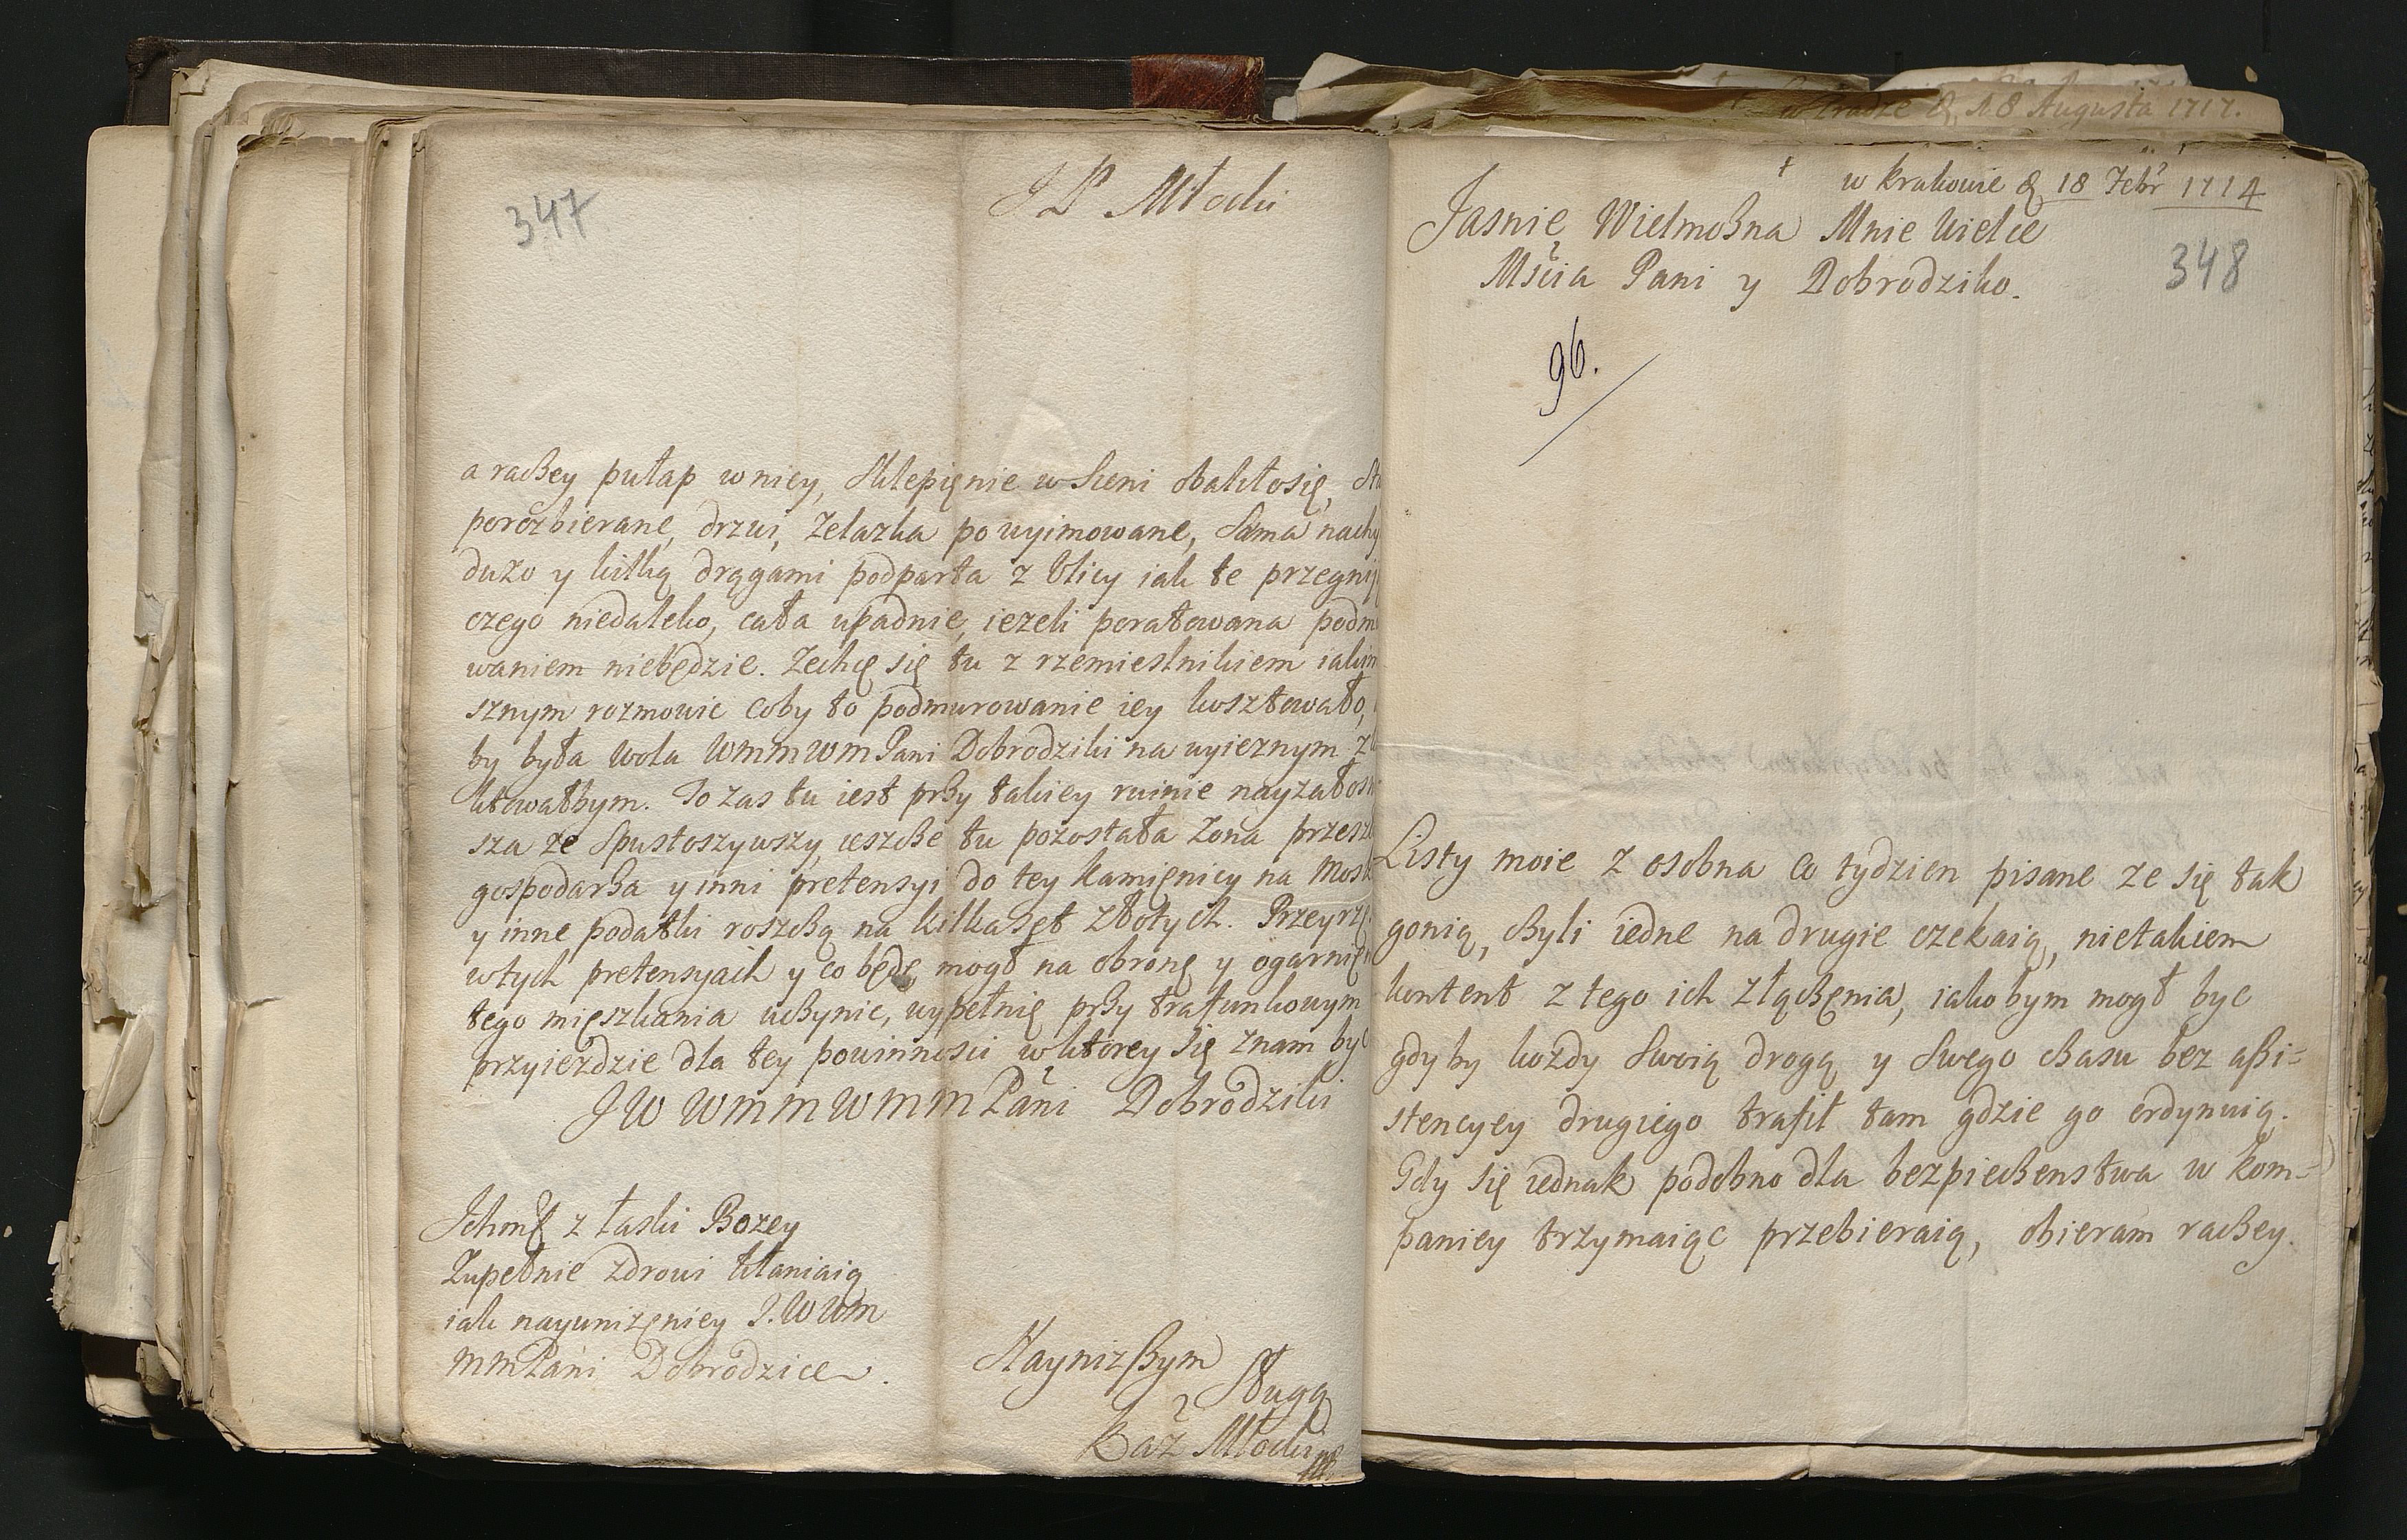 347
J P Młocki
a raczey pułap w niey, Sklepięnie w Sieni obaliło się,
porozbierane, drzwi, Zelazka powyimowane, Sama nachy
dużo y kilką drągami podparta z Ulicy iak te przegnij
czego niedaleko, cała upadnie, iezeli poratowana podm
waniem niebędzie. Zechcę się tu z rzemieslnikiem iakim
sznym rozmowic coby to podmurowanie iey kosztowało,
by była wola WMMWM Pani Dobrodziki na wyieznym
ktowałbym. To zas tu iest przy takiey ruinie nayzałosn
sza ze Spustoszywszy, ieszcze tu pozostała Zona przesz
gospodarza y inni pretensyi do tey Kamięnicy na Most
y inne podatki roszczą na kilkaset złotych. Przeyrzę
w tych pretensyach y co będę mogł na obronę y ogarnię
tego mięszkania uczynic, wypełnię przy trafunkowym
przyiezdzie dla tey powinnosci w ktorey się znam byc
JW WMMWMM Pani Dobrodziki
Ichmć z łaski Bozey
Zupełnie zdrowi kłaniaią
iak nayunizęniey J. W WM
MM Pani Dobrodzice.
Nayniższym
Sługą
Kaz Młocki
w Krakowie d 18 Febr 1714
Jasnie Wielmożna Mnie Wielce
Mścia Pani y Dobrodziko.
348
96.
Listy moie z osobna co tydzien pisane ze się tak
gonią, czyli iedne na drugie czekaią, nietakiem
kontent z tego ich złączęnia, iakobym mogł byc
gdyby kozdy Swoią drogą y Swego czasu bez assi=
stencyey drugiego trafił tam gdzie go ordynuią.
Gdy się iednak podobno dla bezpieczenstwa w kom=
paniey trzymaiąc przebieraią, obieram raczey.
18 Augusta 1717.